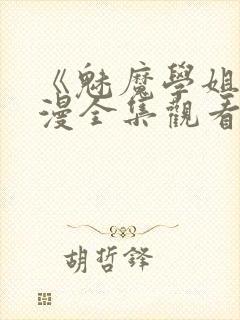 《魅魔學姐
漫全集觀看
胡哲鋒